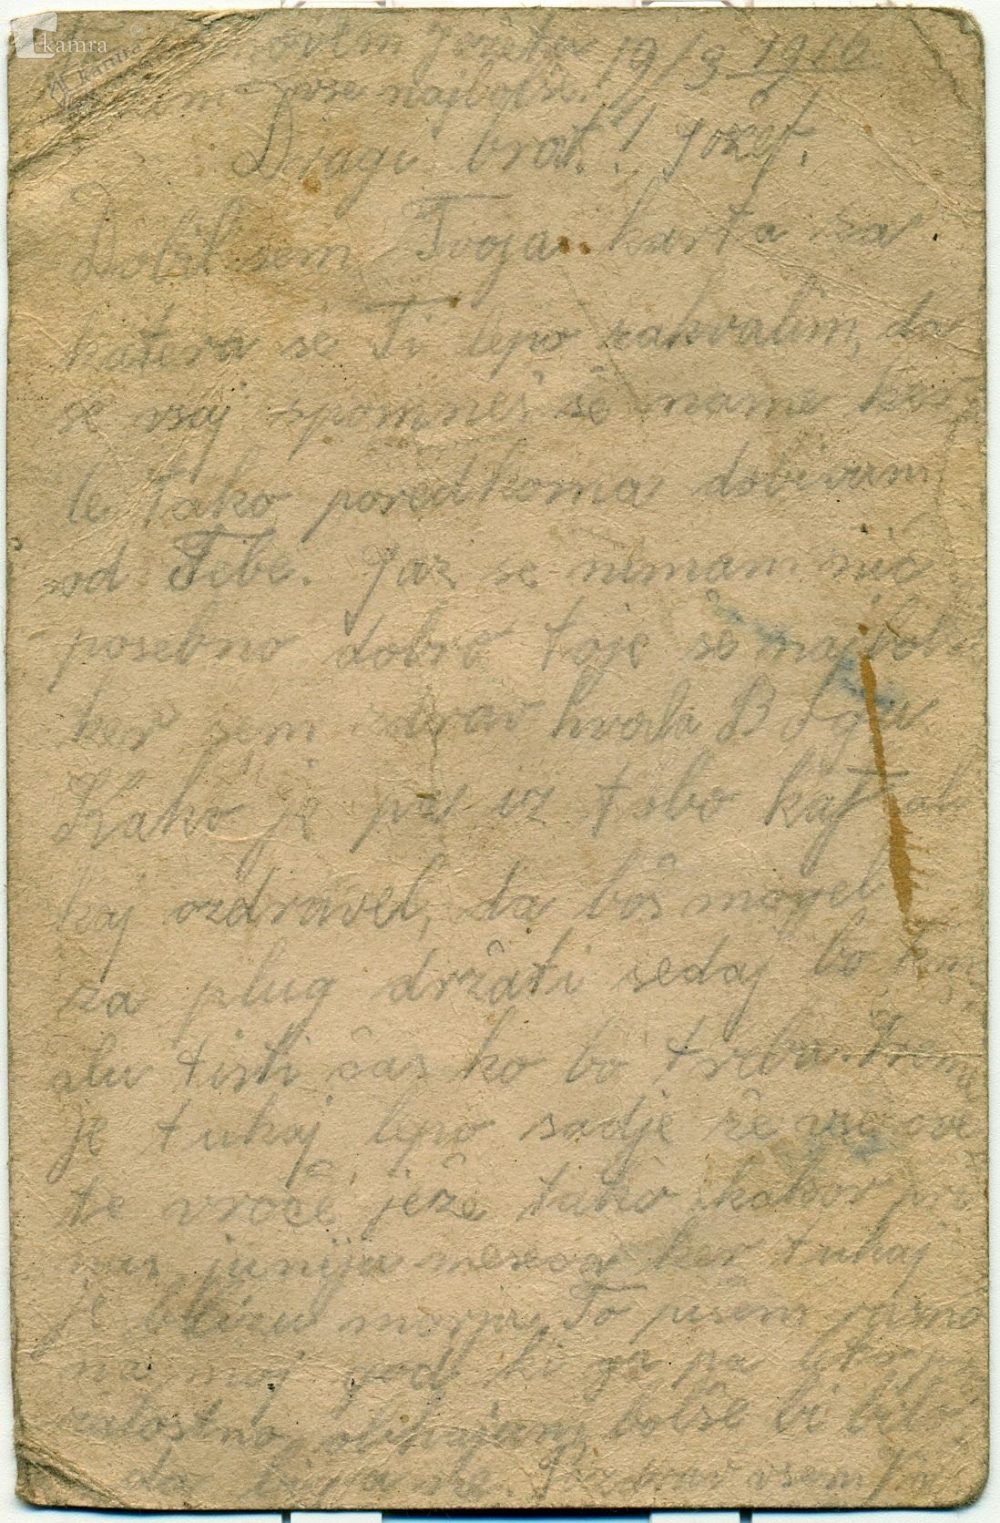 kamra
vsem 19/3 1916
vse najbolše.
Dragi brat! Jožef.
Dobil sem Tvoja karta za
katera se Ti lepo zahvalim, da
se vsaj spomneš še mame ker
le tako poredkoma dobivam
od Tebe. Jaz se nimam nič
posebno dobro toje še najbolše
ker sem zdrav hvala Bogu.
Kako je pa iz tebo kaj ali
kaj ozdravel, da boš mogel
za plug držati sedaj bo
tisti čas ko bo treba. Vreme
je tukaj lepo sadje že vse cve
te vroče ježe tako kakor pri
nas junija meseca ker tukaj
je blizu morja. To pišem ravno
na moj god ki ga pa letos
žalostno obhajam bolše bi bilo
da biga ne. Pozdrav vsem